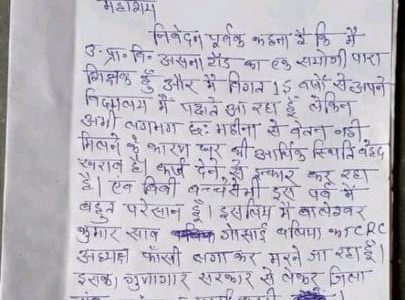 महाशय
निवेदन पूर्वक कहना है कि मैं
उ० प्रा० वि० असना रोड का एक सहयोगी पारा
शिक्षक हूँ और मैं विगत 15 वर्षों से अपने
विद्यालय में पढ़ाते आ रहा हूँ लेकिन
अभी लगभग छः महीना से वेतन नही
मिलने के कारण घर की आर्थिक स्थिति बेहद
खराब है। कर्ज देने से इन्कार कर रहा
है। एंव बिबी बच्चे भी इस पर्व में
बहुत परेसान हैं। इसलिय मैं बालेश्वर
कुमार साव गोसाई बलिया का CRC
अध्यक्ष फाँसी लगा कर मरने जा रहा हूँ।
इसका गुनागार सरकार से लेकर जिला